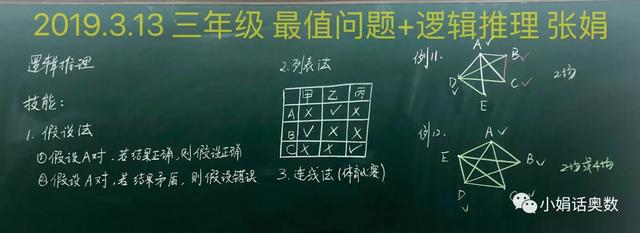 2019.3.13 三年级 最值问题+逻辑推理 张娟
逻辑推理
技能：
1. 假设法
①假设A对，若结果正确，则假设正确
②假设A对，若结果矛盾，则假设错误
2.列表法
甲 乙 丙
A × ✓ ×
B ✓ × ×
C × × ✓
3.连线法(体育比赛)
例11.
A✓
B✓
C✓
D✓
E
2场
例12.
A✓
B✓
C✓
D✓
E
2场或4场
小娟话奥数